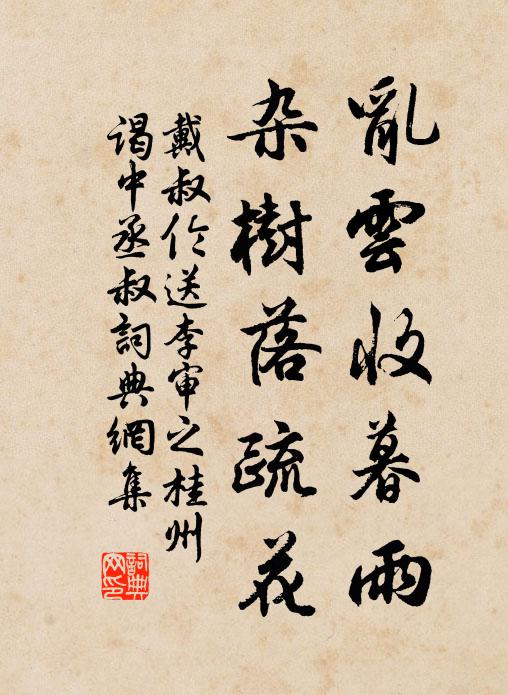 亂雲收暮雨
杂樹落疏花
戴叔伦送李审之桂州
谒中丞叔詞典網集
詞典网印